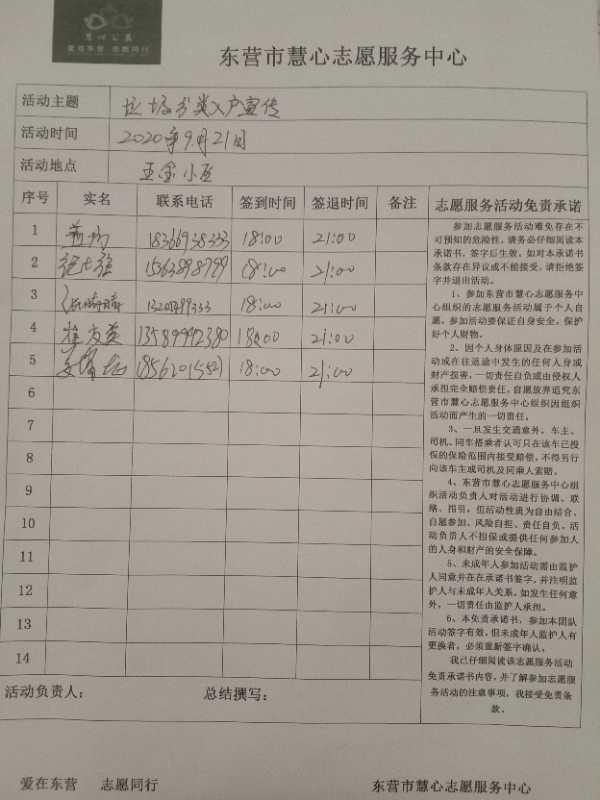 慧心公益
爱在东营 志愿同行
东营市慧心志愿服务中心
活动主题 垃圾分类入户宣传
活动时间 2020年9月21日
活动地点 小区
序号 实名 联系电话 签到时间 签退时间 备注 志愿服务活动免责承诺
1 18366938333 18:00 21:00
2 1563898999 18:00 21:00
3 18:00 21:00
4 13589992380 18:00 21:00
5 18562015521 18:00 21:00
6
7
8
9
10
11
12
13
14
参加志愿服务活动难免存在不
可预知的危险性，请务必仔细阅读本
承诺书，签字后生效。如对本承诺书
条款存在异议或不能接受，请拒绝签
字并退出活动。
1、参加东营市慧心志愿服务中
心组织的志愿服务活动属于个人自
愿。参加活动要保证自身安全，保护
好个人财物。
2、因个人身体原因及在参加活
动或在往返途中发生的任何人身或
财产损害，一切责任自负或由侵权人
承担完全赔偿责任，自愿放弃追究东
营市慧心志愿服务中心组织因组织
活动而产生的一切责任。
3、一旦发生交通意外，车主、
司机、同车搭乘者认可只在该车已投
保的保险范围内接受赔偿，不得另行
向该车主或司机及同乘人索赔。
4、东营市慧心志愿服务中心组
织活动负责人对活动进行协调、联
络、指引，但活动性质为自由结合、
自愿参加、风险自担、责任自负。活
动负责人不担保或提供任何参加人
的人身和财产的安全保障。
5、未成年人参加活动需由监护
人同意并在在承诺书签字，并注明监
护人与未成年人关系，如发生任何意
外，一切责任由监护人承担。
6、本免责承诺书，参加本团队
活动签字有效，但未成年人监护人有
更换者，必须重新签字确认。
我已仔细阅读该志愿服务活动
免责承诺书内容，并了解参加志愿服
务活动的注意事项，我接受免责条
款。
活动负责人： 总结撰写：
爱在东营 志愿同行 东营市慧心志愿服务中心